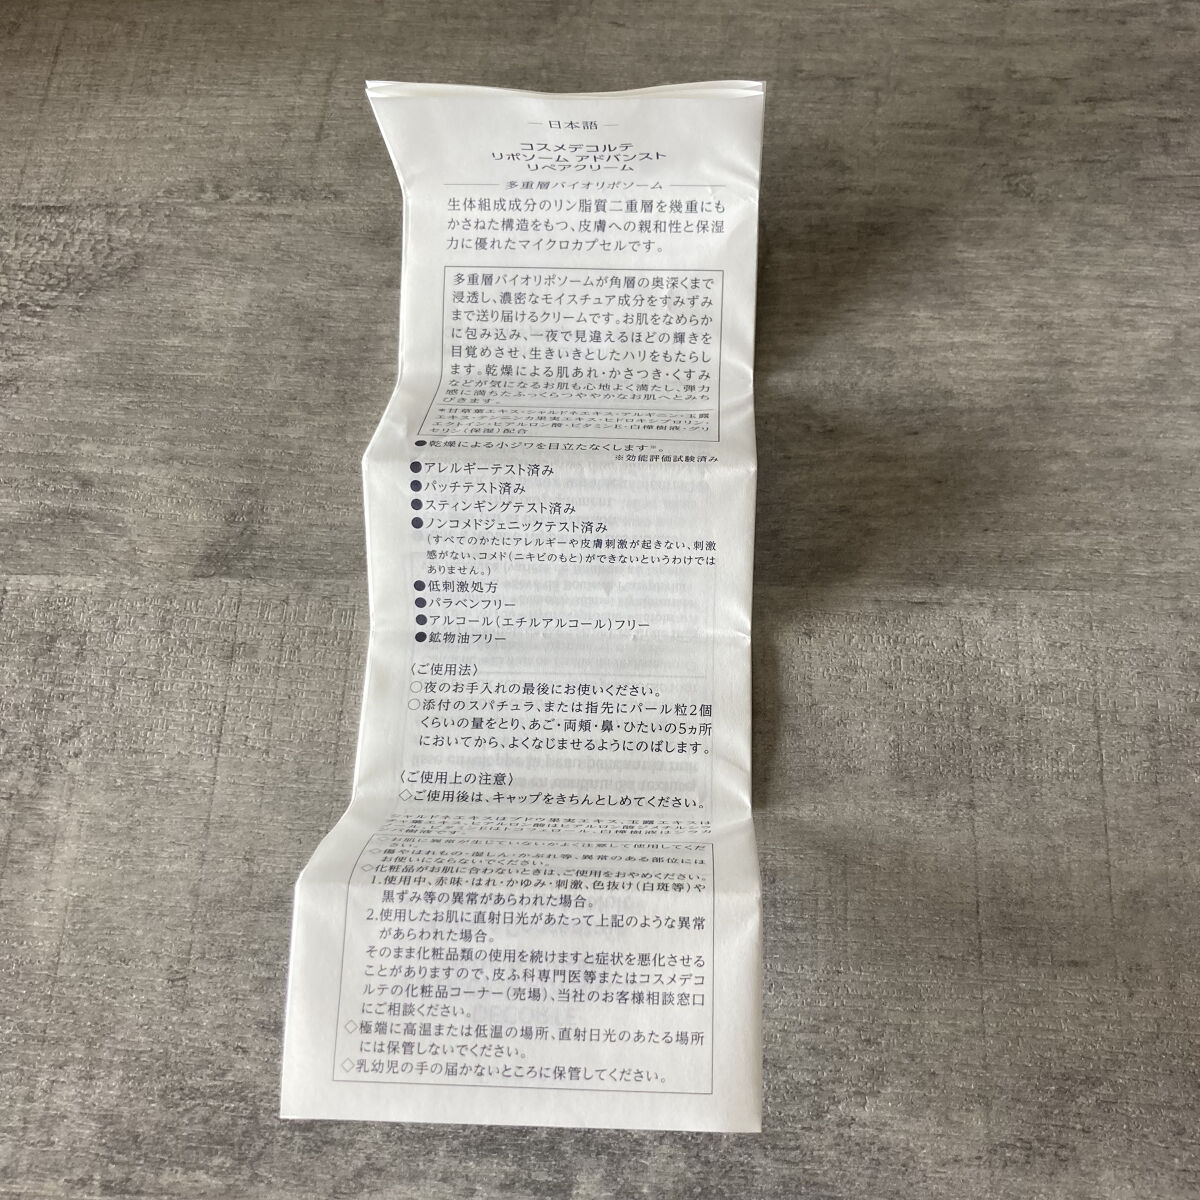 ― 日本語 ―
コスメデコルテ
リポソーム アドバンスト
リペアクリーム
多重層バイオリポソーム
生体組成成分のリン脂質二重層を幾重にも
かさねた構造をもつ、皮膚への親和性と保湿
力に優れたマイクロカプセルです。
多重層バイオリポソームが角層の奥深くまで
浸透し、濃密なモイスチュア成分をすみずみ
まで送り届けるクリームです。お肌をなめらか
に包み込み、一夜で見違えるほどの輝きを
目覚めさせ、生きいきとしたハリをもたらし
ます。乾燥による肌あれ・かさつき・くすみ
などが気になるお肌も心地よく満たし、弾力
感に満ちたふっくらつややかなお肌へとみち
びきます。
*甘草葉エキス・シャルドネエキス・アルギニン・玉露
エキス・テンニンカ果実エキス・ヒドロキシプロリン・
エクトイン・ヒアルロン酸・ビタミンE・白樺樹液・グリ
セリン(保湿)配合
●乾燥による小ジワを目立たなくします※。
※効能評価試験済み
●アレルギーテスト済み
●パッチテスト済み
●スティンギングテスト済み
●ノンコメドジェニックテスト済み
(すべてのかたにアレルギーや皮膚刺激が起きない、刺激
感がない、コメド(ニキビのもと)ができないというわけでは
ありません。)
●低刺激処方
●パラベンフリー
●アルコール(エチルアルコール)フリー
●鉱物油フリー
〈ご使用法〉
○夜のお手入れの最後にお使いください。
○添付のスパチュラ、または指先にパール粒2個
くらいの量をとり、あご・両頬・鼻・ひたいの5ヵ所
においてから、よくなじませるようにのばします。
〈ご使用上の注意〉
◇ご使用後は、キャップをきちんとしめてください。
シャルドネエキスはブドウ果実エキス、玉露エキスは
チャ葉エキス、ヒアルロン酸はヒアルロン酸ジメチルシラ
ノール、ビタミンEはトコフェロール、白樺樹液はシラカ
ンバ樹液です。
◇お肌に異常が生じていないかよく注意して使用してくだ
さい。
◇傷やはれもの・湿しん・かぶれ等、異常のある部位には
お使いにならないでください。
◇化粧品がお肌に合わないときは、ご使用をおやめください。
1.使用中、赤味・はれ・かゆみ・刺激、色抜け(白斑等)や
黒ずみ等の異常があらわれた場合。
2.使用したお肌に直射日光があたって上記のような異常
があらわれた場合。
そのまま化粧品類の使用を続けますと症状を悪化させる
ことがありますので、皮ふ科専門医等またはコスメデコ
ルテの化粧品コーナー(売場)、当社のお客様相談窓口
にご相談ください。
◇極端に高温または低温の場所、直射日光のあたる場所
には保管しないでください。
◇乳幼児の手の届かないところに保管してください。